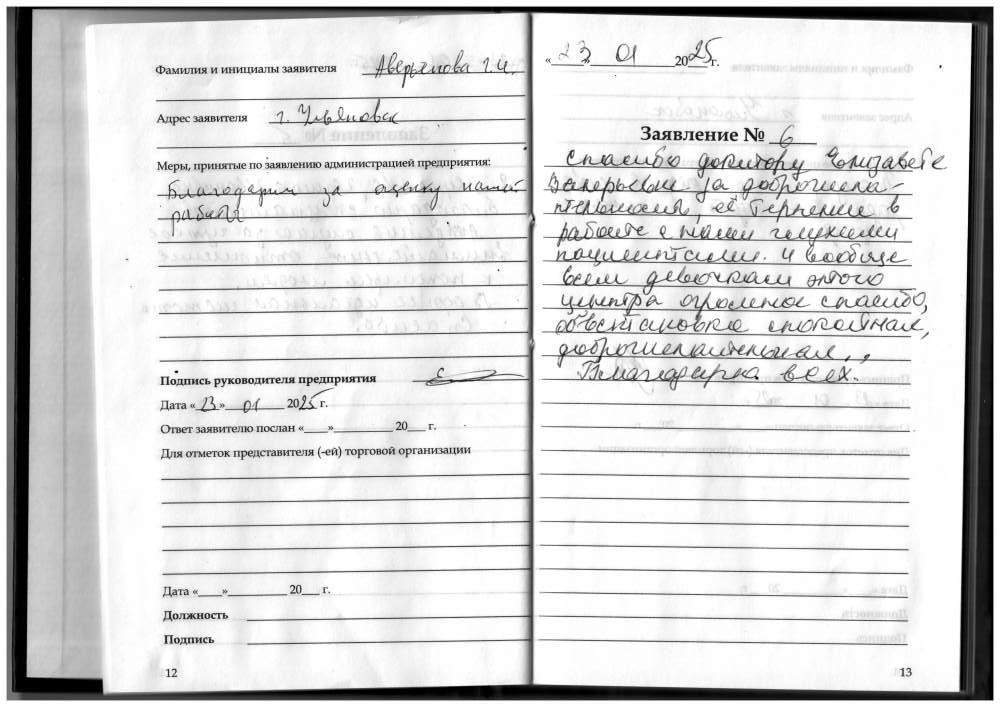 Фамилия и инициалы заявителя Аверьянова Г.И.
Адрес заявителя г. Ульяновск
Меры, принятые по заявлению администрацией предприятия:
Благодарим за оценку нашей
работы
Подпись руководителя предприятия
Дата «23» 01 2025г.
Ответ заявителю послан «___»_________ 20___ г.
Для отметок представителя (-ей) торговой организации
Дата «___»_________ 20___ г.
Должность
Подпись
12
«23» 01 2025г.
Заявление № 6
спасибо доктору Елизавете
Валерьевне за доброжела-
тельность, её терпение в
работе с нами глухими
пациентами. И вообще
всем девочкам этого
центра огромное спасибо,
обстановка спокойная,
доброжелательная,,
Благодарна всех.
13